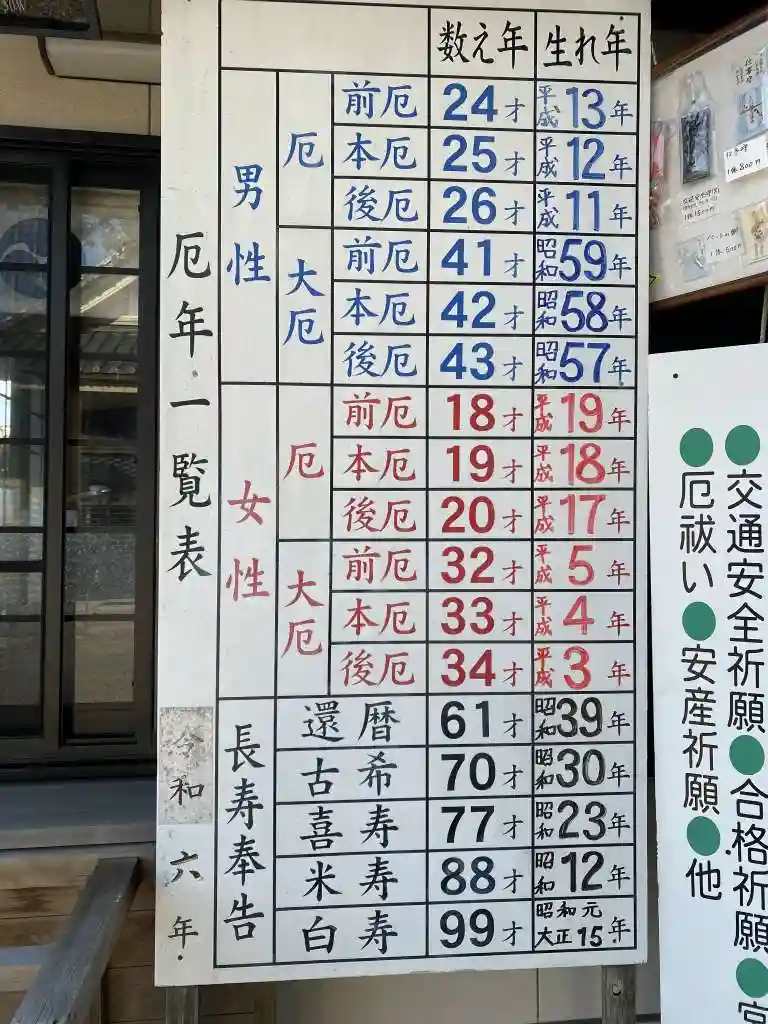 厄年一覧表
令和六年
数え年 生れ年
男性
厄
前厄 24才 平成13年
本厄 25才 平成12年
後厄 26才 平成11年
大厄
前厄 41才 昭和59年
本厄 42才 昭和58年
後厄 43才 昭和57年
女性
厄
前厄 18才 平成19年
本厄 19才 平成18年
後厄 20才 平成17年
大厄
前厄 32才 平成5年
本厄 33才 平成4年
後厄 34才 平成3年
長寿奉告
還暦 61才 昭和39年
古希 70才 昭和30年
喜寿 77才 昭和23年
米寿 88才 昭和12年
白寿 99才 昭和元 大正15年
●交通安全祈願●合格祈願●
●厄祓い●安産祈願●他